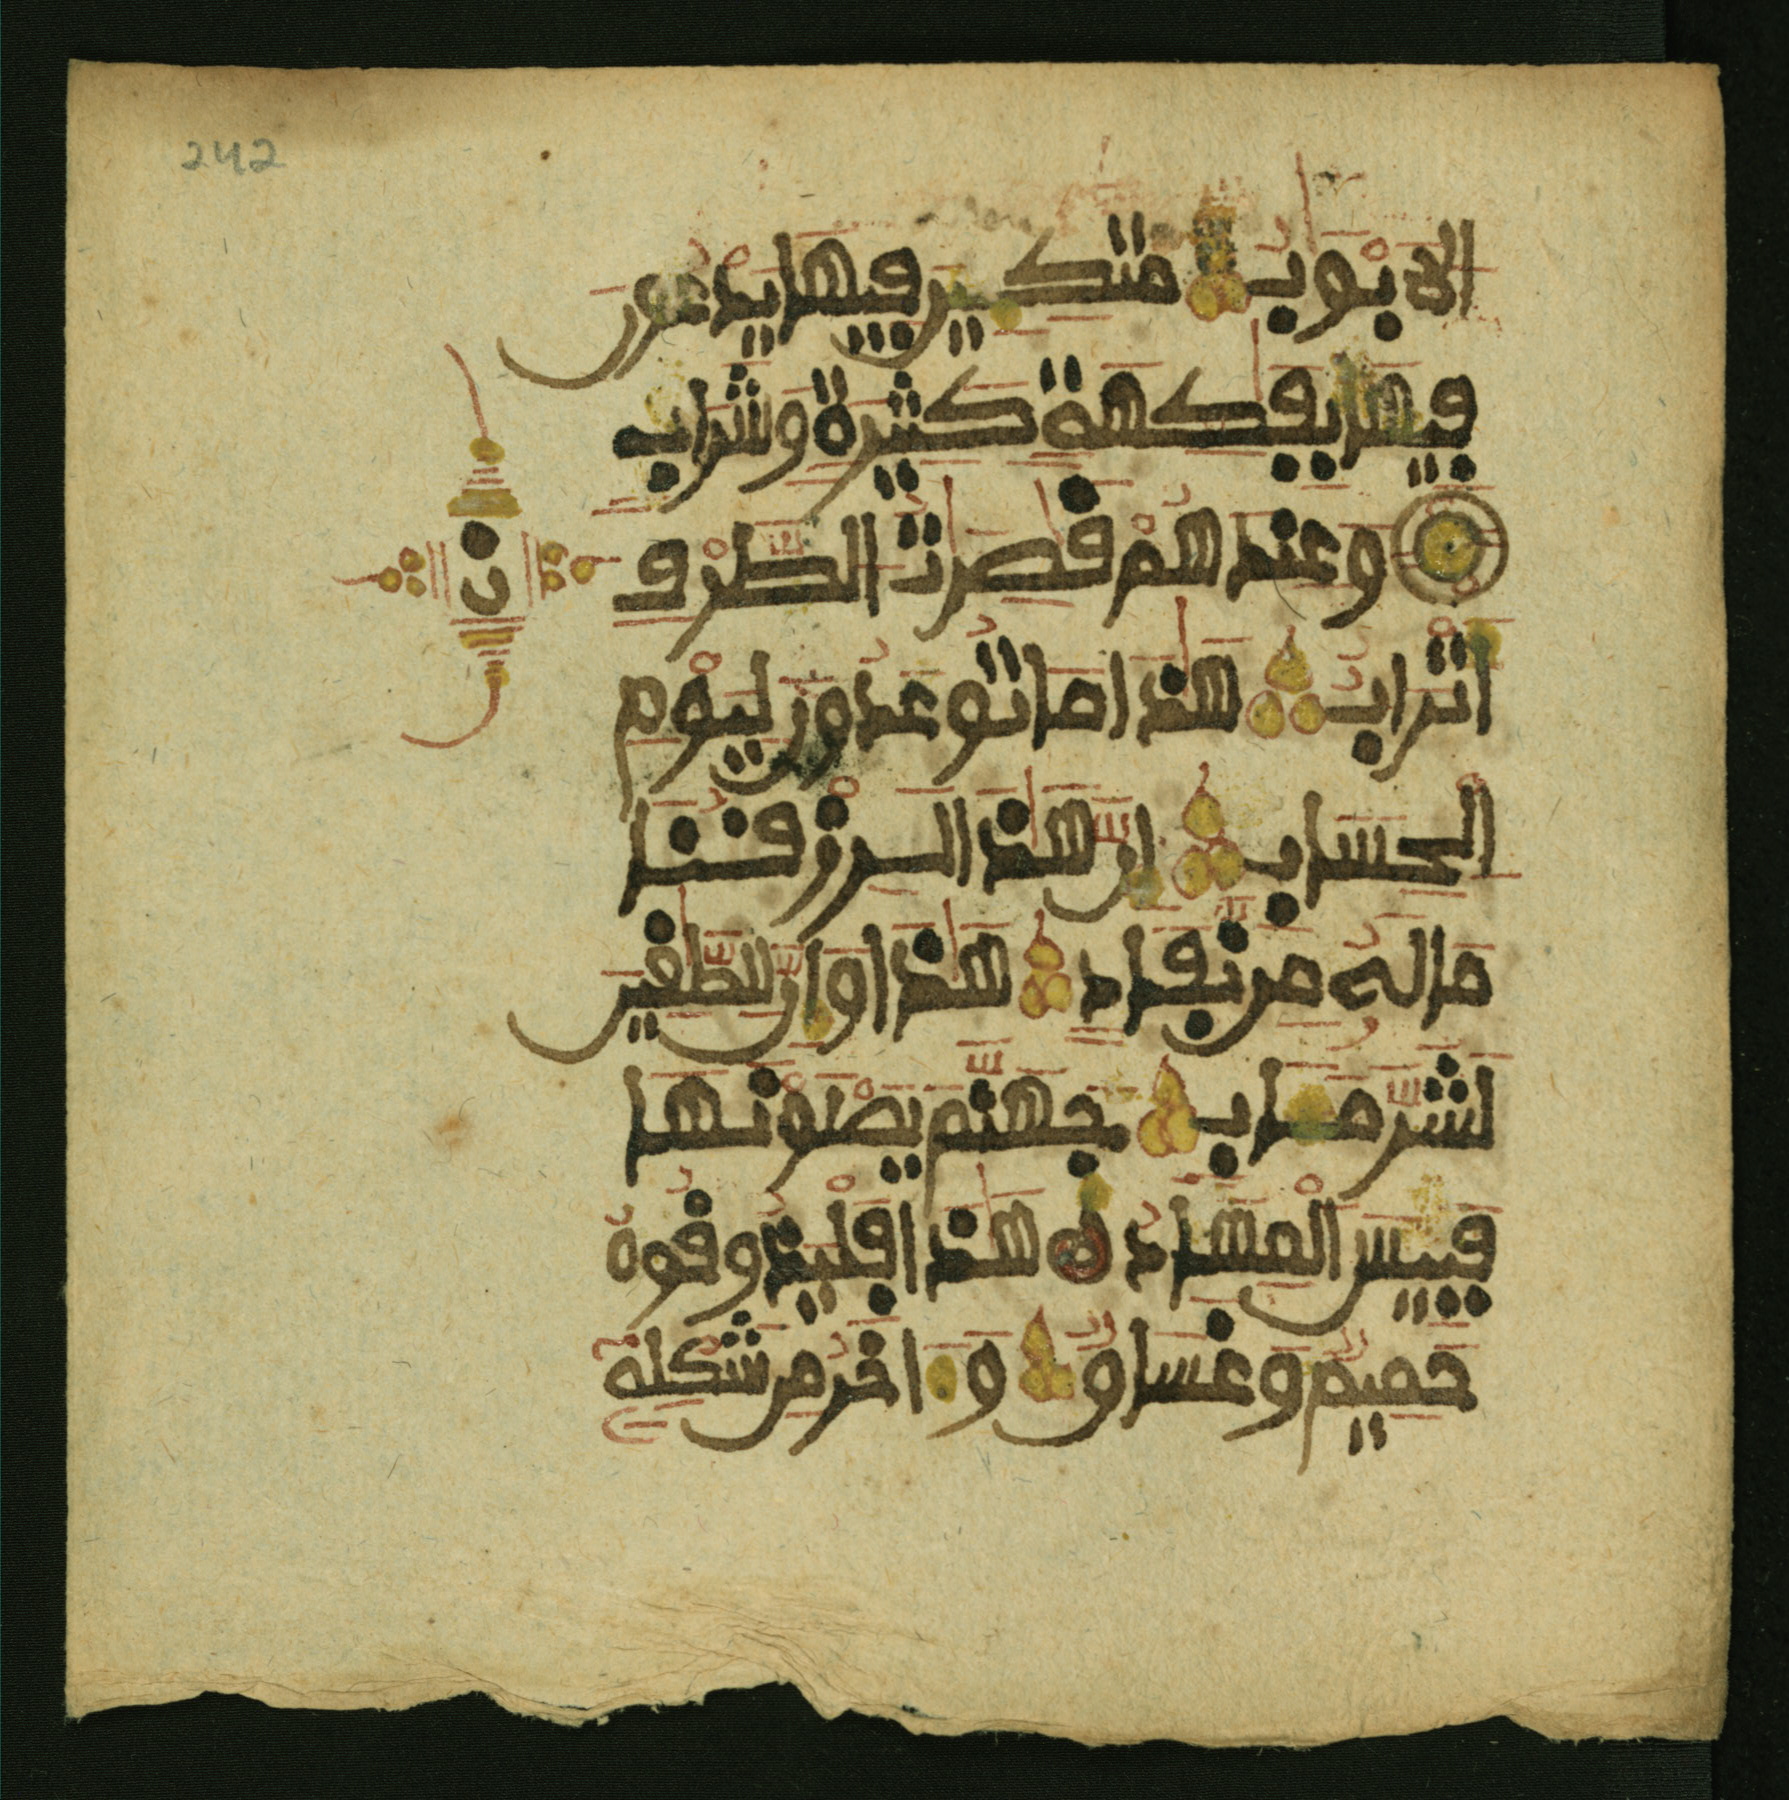 242
الابوب متكين فيها يدعون
فيها بفكهة كثيرة وشراب
وعندهم قصرت الطرف
ن
اتراب هذا ما توعدون ليوم
الحساب ان هذا لرزقنا
ماله من نفاد هذا وان للطغين
لشر ماب جهنم يصلونها
فبيس المهاد هذا فليذوقوه
حميم وغساق و اخر من شكله